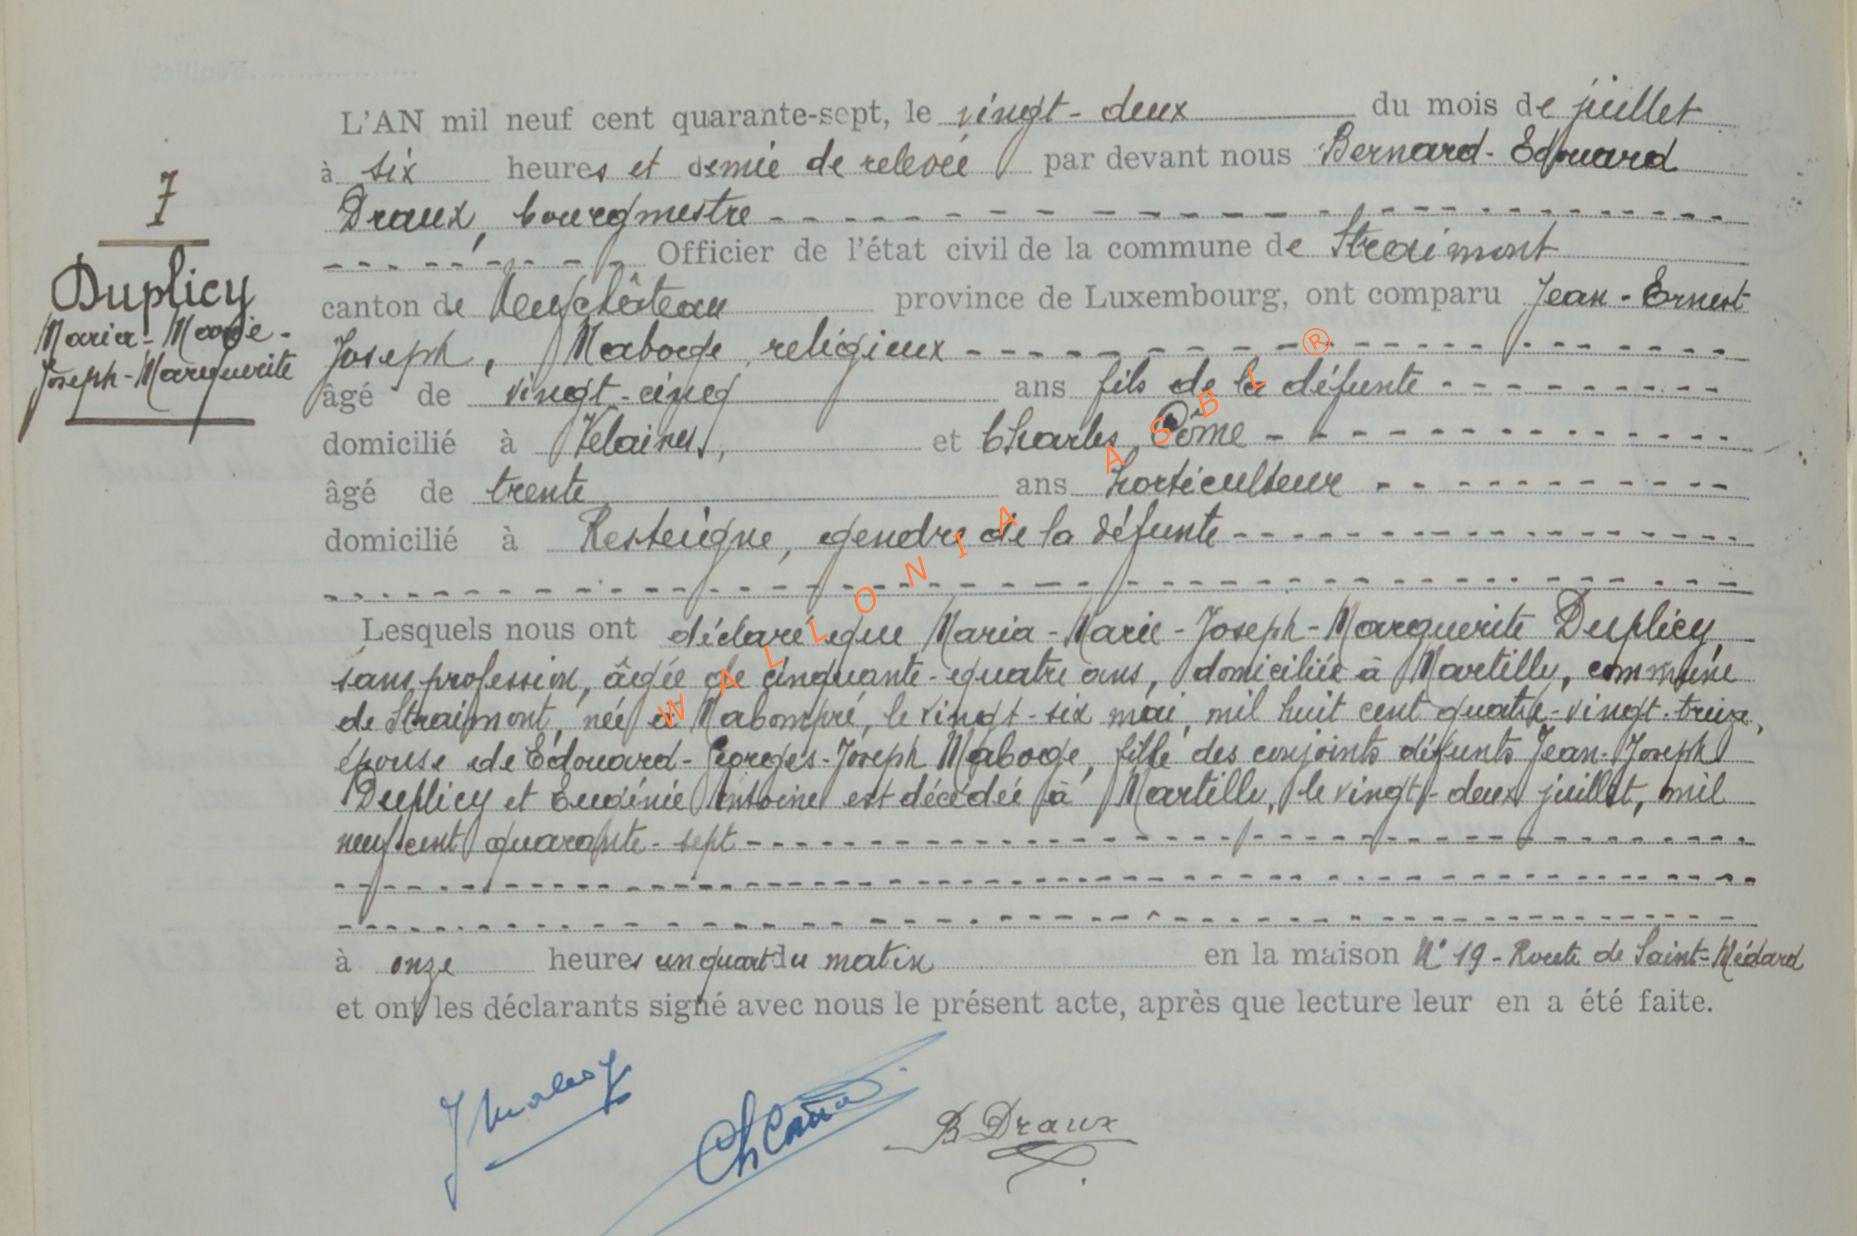 L'AN mil neuf cent quarante-sept, le vingt-deux du mois de juillet
à six heures et demie de relevée par devant nous Bernard-Edouard
Draux, bourgmestre
Officier de l'état civil de la commune de Straimont
canton de Neufchâteau province de Luxembourg, ont comparu Jean-Ernest
Joseph, Maboge religieux
âgé de vingt-cinq ans fils de la défunte
domicilié à Velaines, et Charles Côme
âgé de trente ans horticulteur
domicilié à Resteigne, gendre de la défunte
Lesquels nous ont déclaré que Maria-Marie-Joseph-Marguerite Duplicy
sans profession, âgée de cinquante-quatre ans, domiciliée à Martilly, commune
de Straimont, née à Nabompré, le vingt-six mai mil huit cent quatre-vingt-treize,
épouse de Edouard-Georges-Joseph Maboge, fille des conjoints défunts Jean-Joseph
Duplicy et Eugénie Antoine est décédée à Martilly, le vingt-deux juillet, mil
neuf cent quarante-sept
à onze heures un quart du matin en la maison N° 19 - Route de Saint-Médard
et ont les déclarants signé avec nous le présent acte, après que lecture leur en a été faite.
7
Duplicy
Maria-Marie-
Joseph-Marguerite
B Draux
WALLONIA ASBL ®